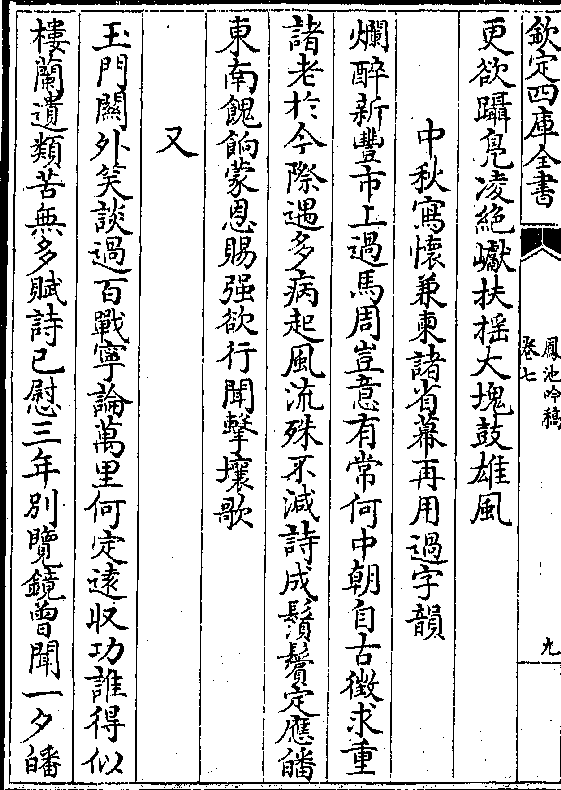 欽定四庫全書
鳳池吟稿
卷七
九
更欲躡鳧凌絶巘扶揺大塊鼓雄風
中秋寫懷兼柬諸省幕再用過字韻
爛醉新豐市上過馬周豈意有常何中朝自古徴求重
諸老於今際遇多病起風流殊不減詩成鬚鬢定應皤
東南餽餉蒙恩賜强欲行聞擊壤歌
又
玉門闗外笑談過百戰寧論萬里何定逺収功誰得似
樓蘭遺類苦無多賦詩已慰三年别覽鏡曾聞一夕皤